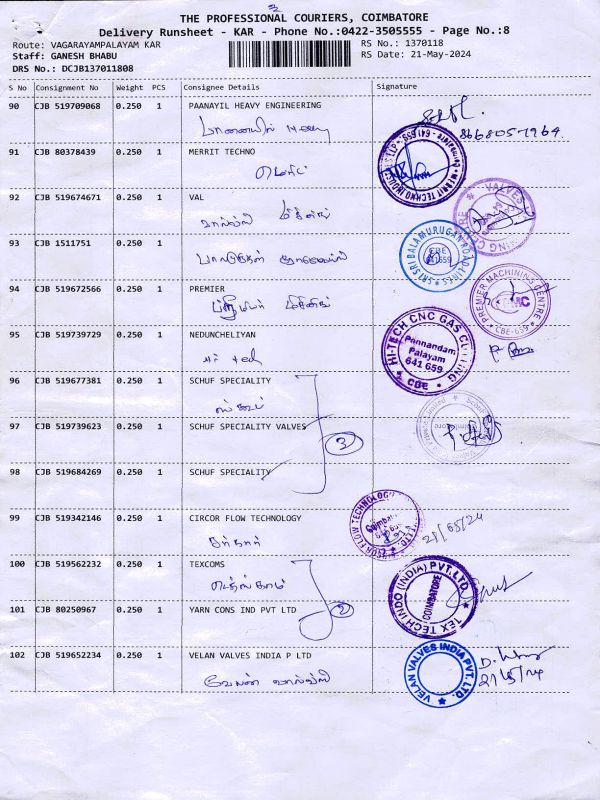 THE PROFESSIONAL COURIERS, COIMBATORE
Delivery Runsheet - KAR - Phone No.:0422-3505555 - Page No.:8
Route: VAGARAYAMPALAYAM KAR
RS No.: 1370118
Staff: GANESH BHABU
RS Date: 21-May-2024
DRS No.: DCJB137011808
S No Consignment No Weight PCS Consignee Details Signature
90 CJB 519709068 0.250 1 PAANAYIL HEAVY ENGINEERING
8668057964.
91 CJB 80378439 0.250 1 MERRIT TECHNO
92 CJB 519674671 0.250 1 VAL
VALVES
93 CJB 1511751 0.250 1
SRI SRI BALAMURUGAN ROAD LINES
CBE
641659
94 CJB 519672566 0.250 1 PREMIER
PREMIER MACHINING CENTRE
PMC
CBE-659
95 CJB 519739729 0.250 1 NEDUNCHELIYAN
HI-TECH CNC GAS CUTTING
Ponnandam
Palayam
641 659
CBE
96 CJB 519677381 0.250 1 SCHUF SPECIALITY
97 CJB 519739623 0.250 1 SCHUF SPECIALITY VALVES
3
98 CJB 519684269 0.250 1 SCHUF SPECIALITY
99 CJB 519342146 0.250 1 CIRCOR FLOW TECHNOLOGY
21/05/24
100 CJB 519562232 0.250 1 TEXCOMS
TEX TECH INDO (INDIA) PVT.LTD.
COIMBATORE
101 CJB 80250967 0.250 1 YARN CONS IND PVT LTD
2
102 CJB 519652234 0.250 1 VELAN VALVES INDIA P LTD
வேலன் வால்வ்ஸ்
VELAN VALVES INDIA PVT. LTD.
21/5/24